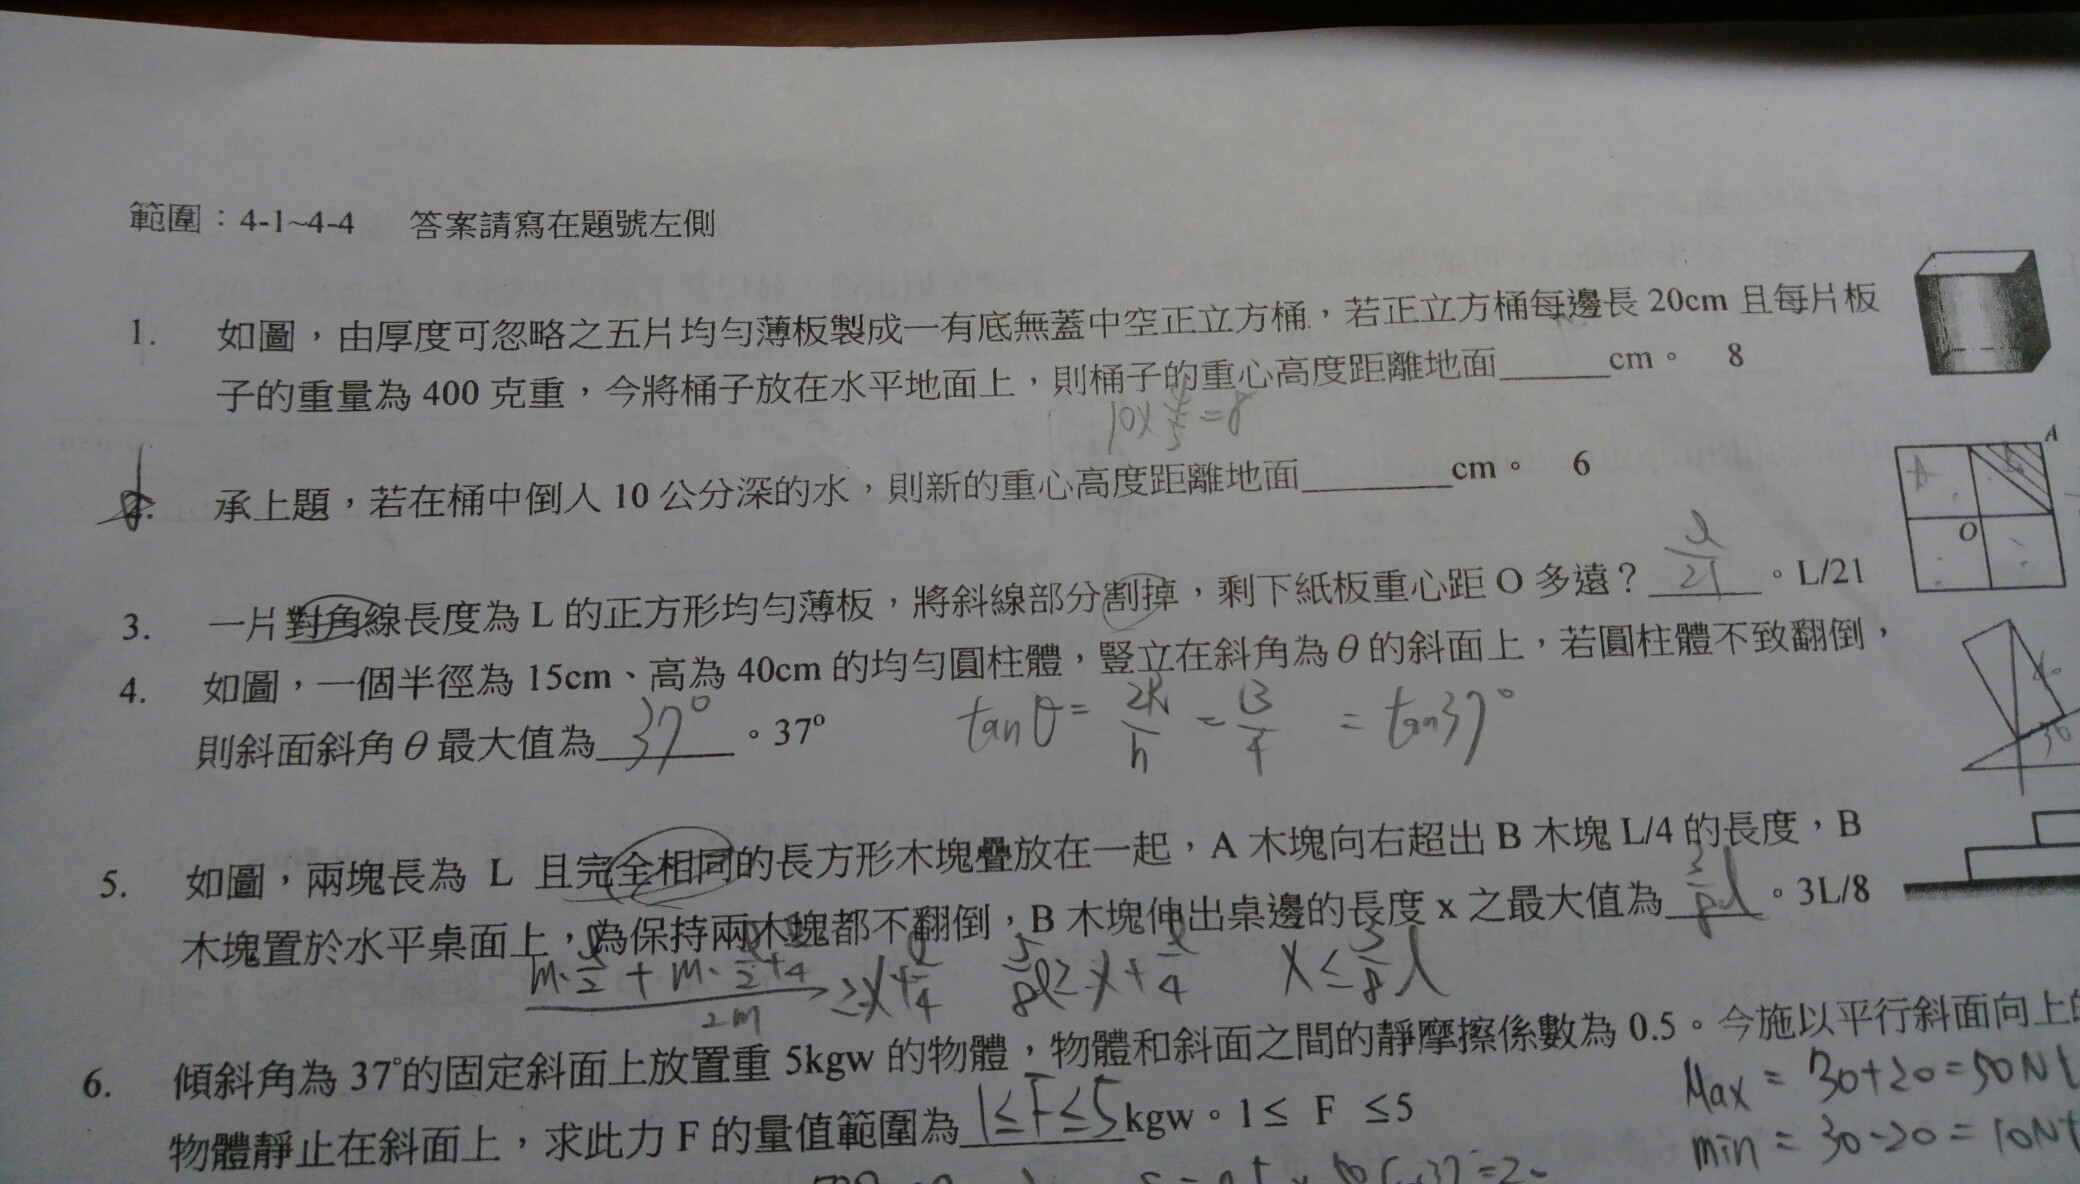 範圍：4-1~4-4 答案請寫在題號左側
1. 如圖，由厚度可忽略之五片均勻薄板製成一有底無蓋中空正立方桶，若正立方桶每邊長 20cm 且每片板
子的重量為 400 克重，今將桶子放在水平地面上，則桶子的重心高度距離地面______cm。 8
10×4/5=8
2. 承上題，若在桶中倒入 10 公分深的水，則新的重心高度距離地面________cm。 6
A
O
3. 一片對角線長度為 L 的正方形均勻薄板，將斜線部分割掉，剩下紙板重心距 O 多遠？ l/21 。L/21
4. 如圖，一個半徑為 15cm、高為 40cm 的均勻圓柱體，豎立在斜角為θ的斜面上，若圓柱體不致翻倒，
則斜面斜角θ最大值為 37° 。37°
tanθ= 2R/h = 3/4 = tan37°
5. 如圖，兩塊長為 L 且完全相同的長方形木塊疊放在一起，A 木塊向右超出 B 木塊 L/4 的長度，B
木塊置於水平桌面上，為保持兩木塊都不翻倒，B 木塊伸出桌邊的長度 x 之最大值為 3/8 l 。3L/8
5/8 l ≥ x + l/4 x ≤ 3/8 l
6. 傾斜角為 37°的固定斜面上放置重 5kgw 的物體，物體和斜面之間的靜摩擦係數為 0.5。今施以平行斜面向上
物體靜止在斜面上，求此力 F 的量值範圍為 1≤F≤5 kgw。1≤ F ≤5
Max = 30+20=50Nt
min = 30-20=10Nt